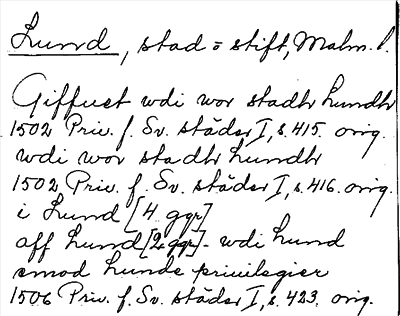 Lund, stad o stift, Malm. l.
Giffuet wdi wor stadh Lundh
1502 Priv. f. Sv. städer I, s. 415. orig.
wdi wor stadh Lundh
1502 Priv. f. Sv. städer I, s. 416. orig.
i Lund [4 ggr]
aff Lund [2 ggr] - wdi Lund
emod Lunde priuilegier
1506 Priv. f. Sv. städer I, s. 423. orig.